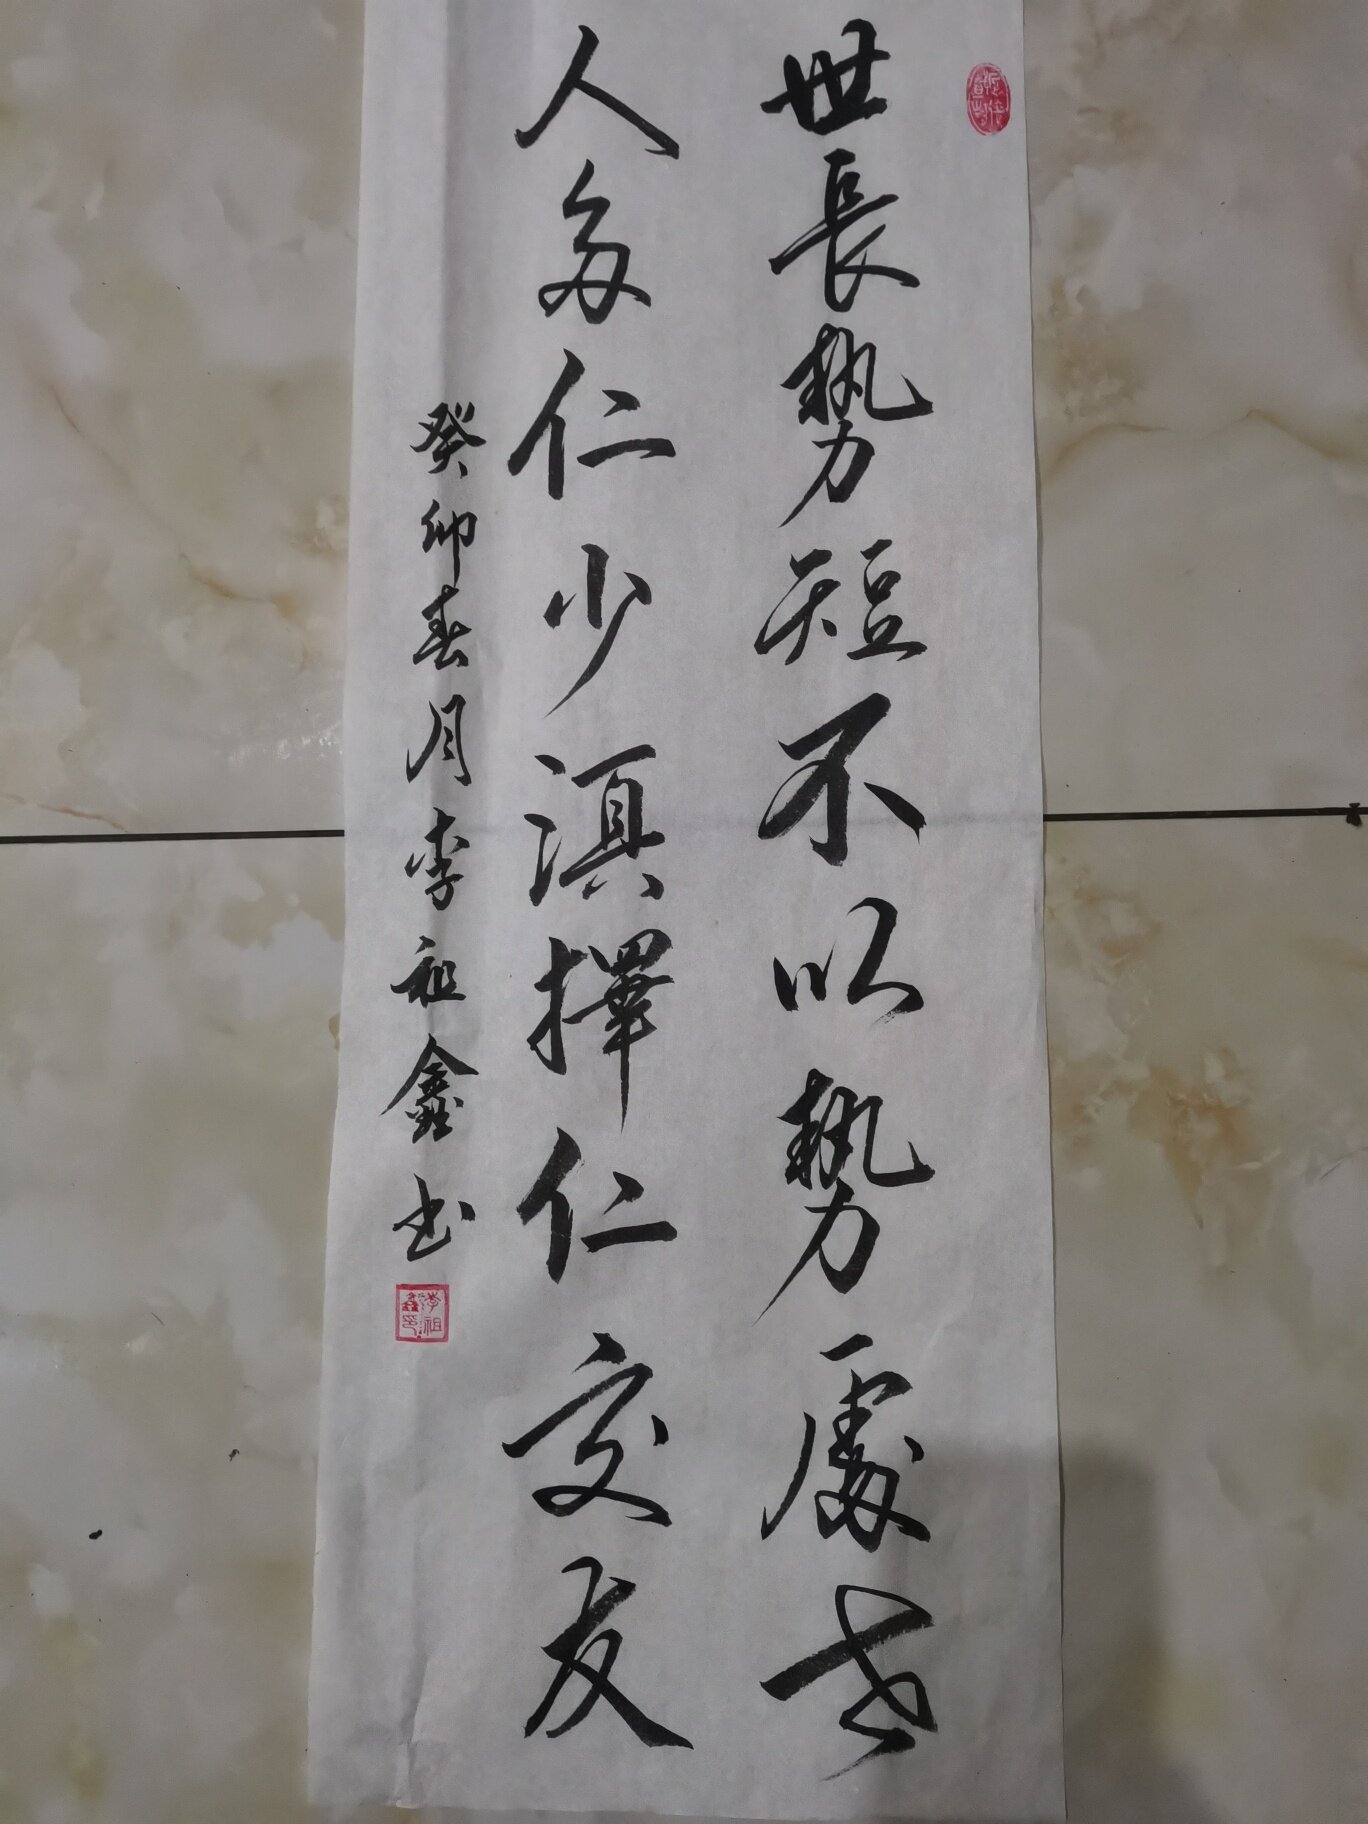 世長勢短不以勢處世
人多仁少湏擇仁交友
癸卯春月李祖鑫书
李祖鑫印